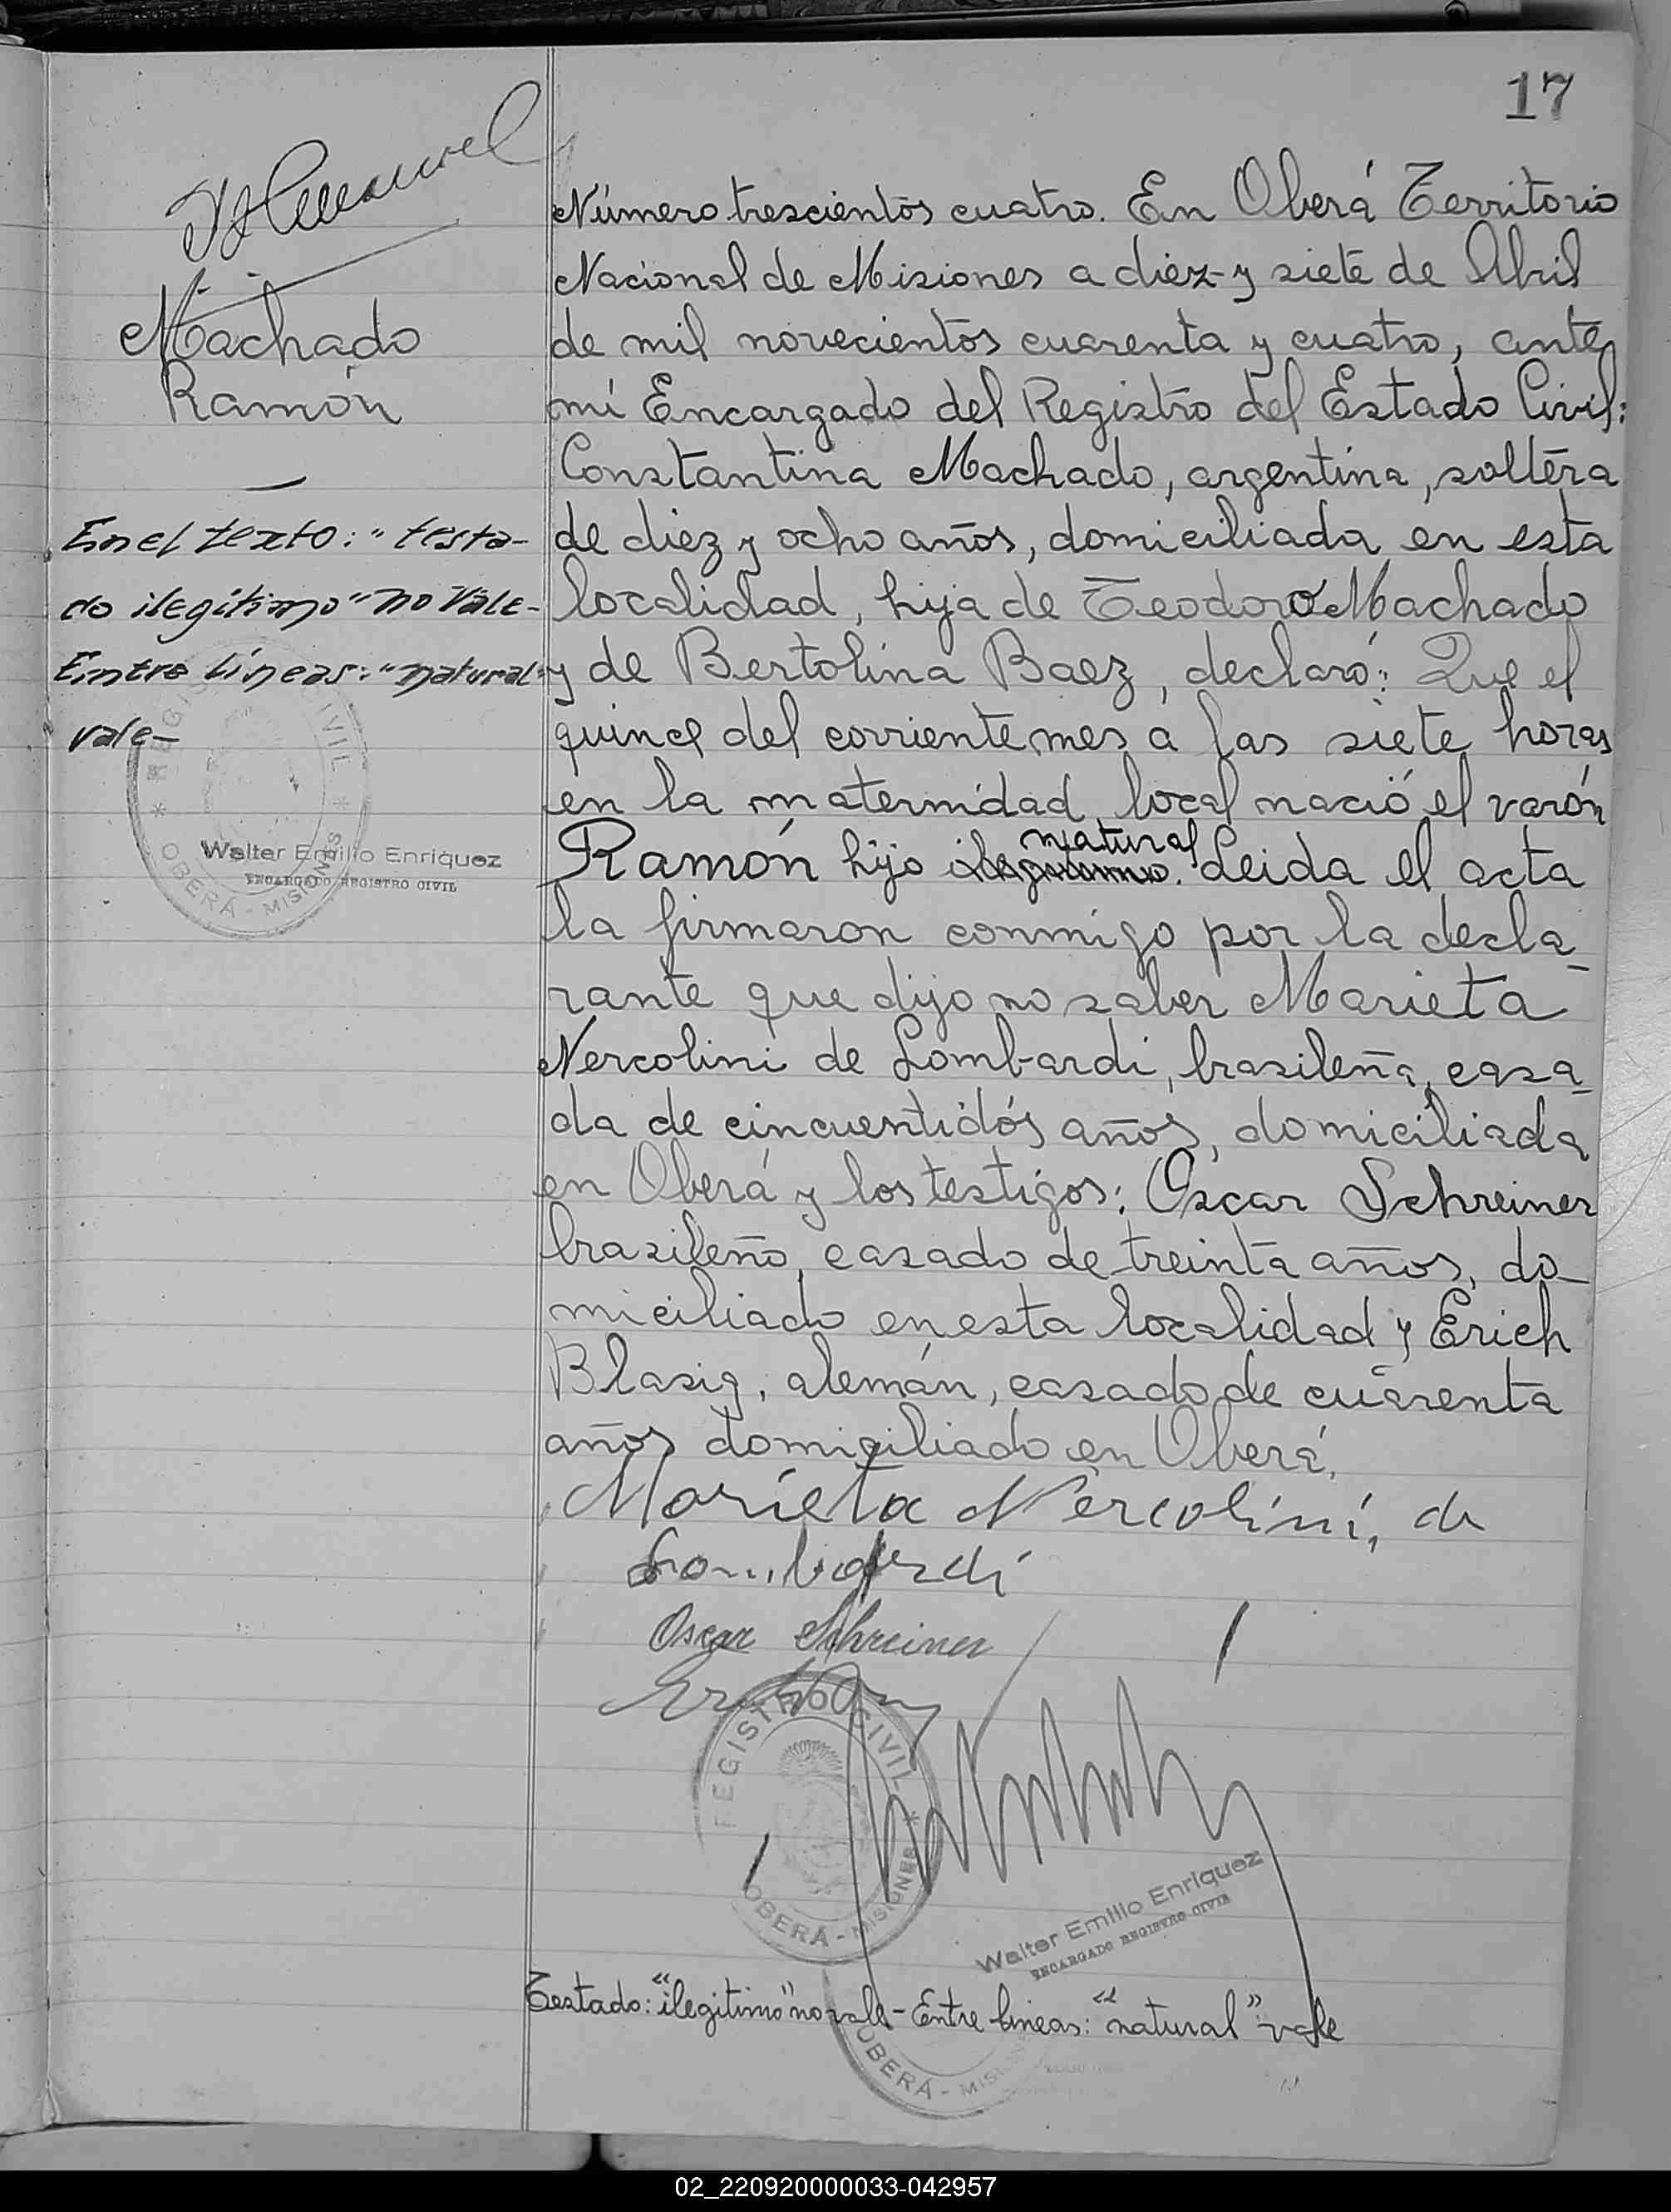 17
Machado
Ramón
En el texto: "testa-
do ilegítimo" no vale-
Entre líneas: "natural"
vale-
REGISTRO CIVIL
* OBERÁ - MISIONES *
Walter Emilio Enriquez
ENCARGADO REGISTRO CIVIL
Número trescientos cuatro. En Oberá Territorio
Nacional de Misiones a diez y siete de Abril
de mil novecientos cuarenta y cuatro, ante
mí Encargado del Registro del Estado Civil:
Constantina Machado, argentina, soltera
de diez y ocho años, domiciliada en esta
localidad, hija de Teodoro Machado
y de Bertolina Baez, declaró: Que el
quince del corriente mes a las siete horas
en la maternidad local nació el varón
natural
Ramón hijo ilegitimo. Leida el acta
la firmaron conmigo por la decla_
rante que dijo no saber Marieta
Nercolini de Lombardi, brasileña, casa_
da de cincuentidós años, domiciliada
en Oberá y los testigos: Oscar Schreiner
brasileño, casado de treinta años, do_
miciliado en esta localidad y Erich
Blasig, alemán, casado de cuarenta
años domiciliado en Oberá.
Marieta Nercolini, de
Lombardi
Oscar Schreiner
REGISTRO CIVIL
OBERÁ - MISIONES *
Walter Emilio Enriquez
ENCARGADO REGISTRO CIVIL
Testado: "ilegitimo" no vale - Entre lineas: "natural" vale
OBERÁ -
02_220920000033-042957